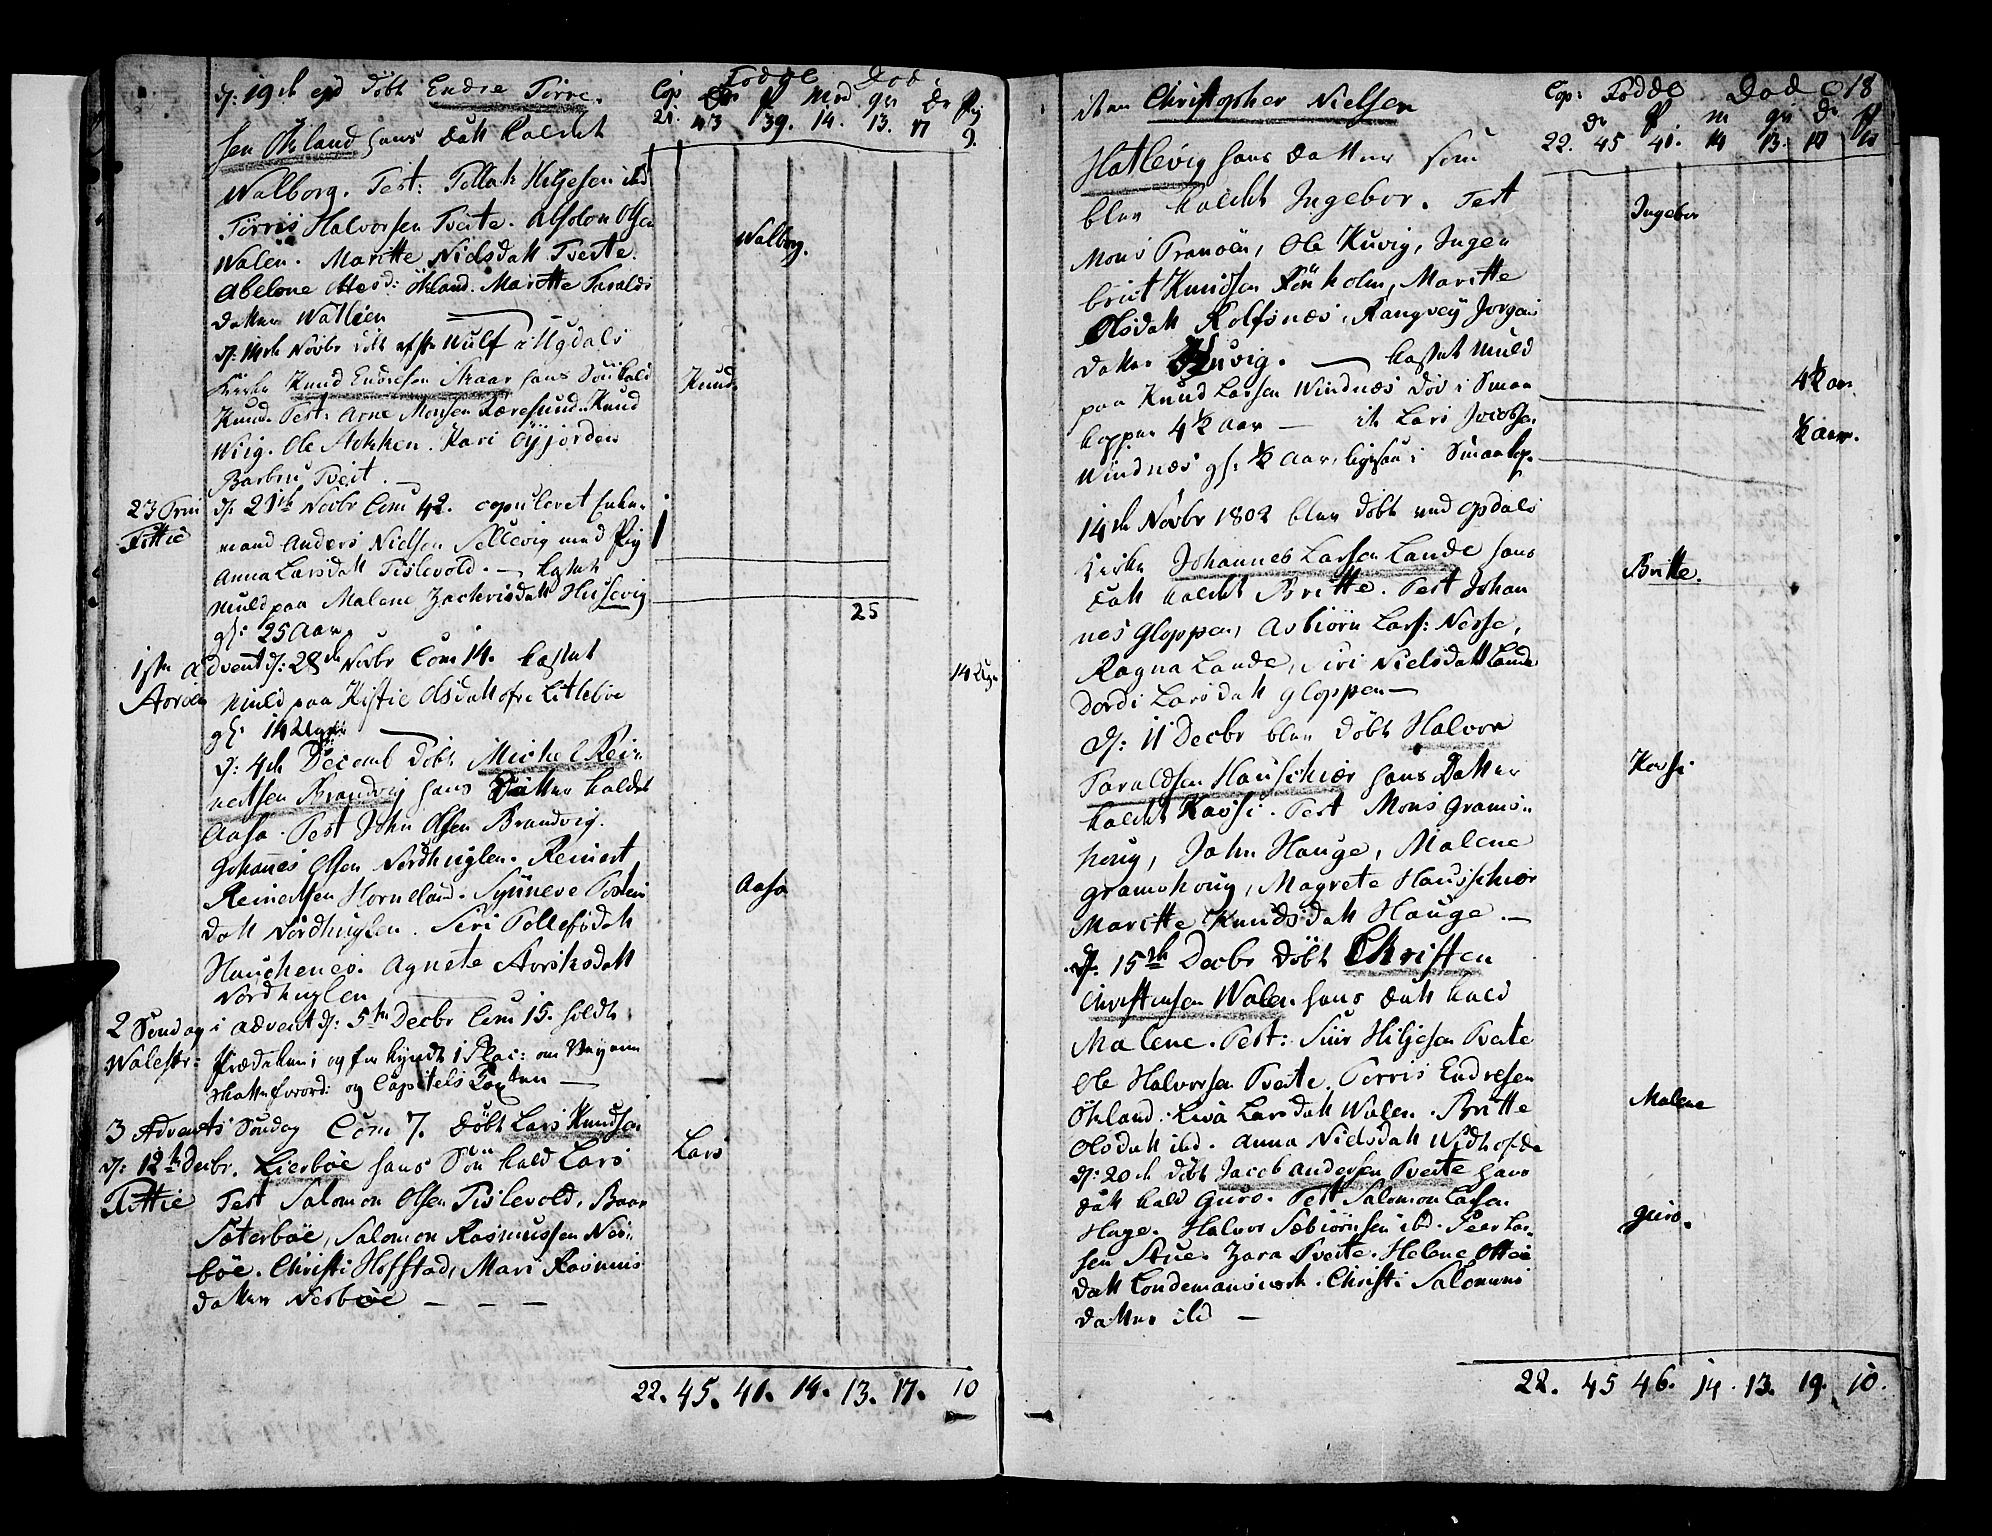 d: 19de ejd döbt Endre Törre-
sen Økland hans Datt kaldet
Walborg. Test: Tollak Hiljesen ibd
Törris Halvorsen Tveite. Absolon Olsen
Walen. Maritte Nielsdatt Tveite.
Abelone Olesd: Økland. Maritte Taralds
datter Wallien
d: 14de Novbr
Kirke Knud Endresen Skaar hans Sön kald
Knud. Test: Arne Monsen Færesund. Knud
Wiig. Ole Nokken. Kari Øyjorden
Barbru Tveit.
23 Trin d: 21de Novbr Com 42. copuleret Enke-
Fittie mand Anders Nielsen Sellevig med Pig
Anna Larsdatt Tislevold. — kastet
Muld paa Malene Zachrisdatt Husevig
gl: 25 Aar
1ste Advent d: 28de Novbr Com 14. kastet
muld paa Kistie Olsdatt Litleböe
gl. 14 Uger
d: 4de Decemb döbt Michel Rei-
nertsen Brandvig hans Datter kaldet
Aasa. Test John Olsen Brandvig.
Johannes Olsen Nordhuglen. Reinert
Reinertsen Horneland. Synneve
datt Nordhuglen. Siri Tollefsdatt
Agnete
Nordhuglen
2 Söndag i Advent d: 5te Decbr Com 15. holdt
Walestr: Prædiken og
og Capitels Taxten —
3 Advents Söndag Com 7. döbt Lars Knudsen
d: 12te Decbr. Lierböe hans Sön kald Lars
Fittie Test Salomon Olsen Tislevold, Baar
Sæterböe, Salomon Rasmussen Nes-
böe. Christi Hofstad, Mari Rasmus
datter Nesböe — — —
Cop Födde Död
21. 43 39. 14. 13. 17 9.
Walborg.
Knud.
25
14 Uger
Aasa
Lars
22. 45. 41. 14. 13. 17. 10
Christopher Nielsen
Hatlevig hans Datter som
blev kaldet Ingebor. Test
Mons Tranöen, Ole Huvig, Inge-
brict Knudsen Fönholm, Maritte
Olsdatt Rolfsnæs, Rangvey Jorgens
datter Huvig. — kastet Muld
paa Knud Larsen Windnæs död i Smaa
kopper 4½ Aar — it Lars Jocobsen
Windnæs gl: ½ Aar, ligesaa i Smaakop.
14de Novbr 1802 blev döbt ved Opdals
Kirke Johannes Larsen Lande hans
Datt kaldet Britte. Test Johan
nes Gloppen, Asbiörn Lars: Nesse,
Ragna Lande, Siri Nielsdatt Lande
Dordi Larsdatt Gloppen —
d: 11 Decbr blev döbt Halvor
Taraldsen Hauschiær hans Datter
kaldet Kassi. Test Mons Grams-
houg, John Houge, Malene
Gramshoug, Magrete Hauschiær
Maritte Knudsdatt Hauge. —
d: 15de Decbr döbt Christen
Christensen Walen hans Datt kald
Malene. Test: Siur Hiljesen Tveite
Ole Halvorsen Tveite. Törris Endresen
Økland. Liva Larsdatt Walen. Britte
Olsdatt ibd. Anna Nielsdatt
d: 20de döbt Jacob Andersen Tveite hans
Datt kald Guro. Test Salomon Larsen
Huge. Halvor Sæbiörnsen ibd. Peer Lar-
sen Stue. Zara Tveite. Helene Ottes
datt Londemansverk. Christi Salomons
datter ibd —
Cop: Födde Döde 18
22. 45 41. 14 13. 17 10
Ingebor
4½ aar.
½ aar.
Britte.
Kassi
Malene
Guro.
22. 45 46. 14. 13. 19. 10.